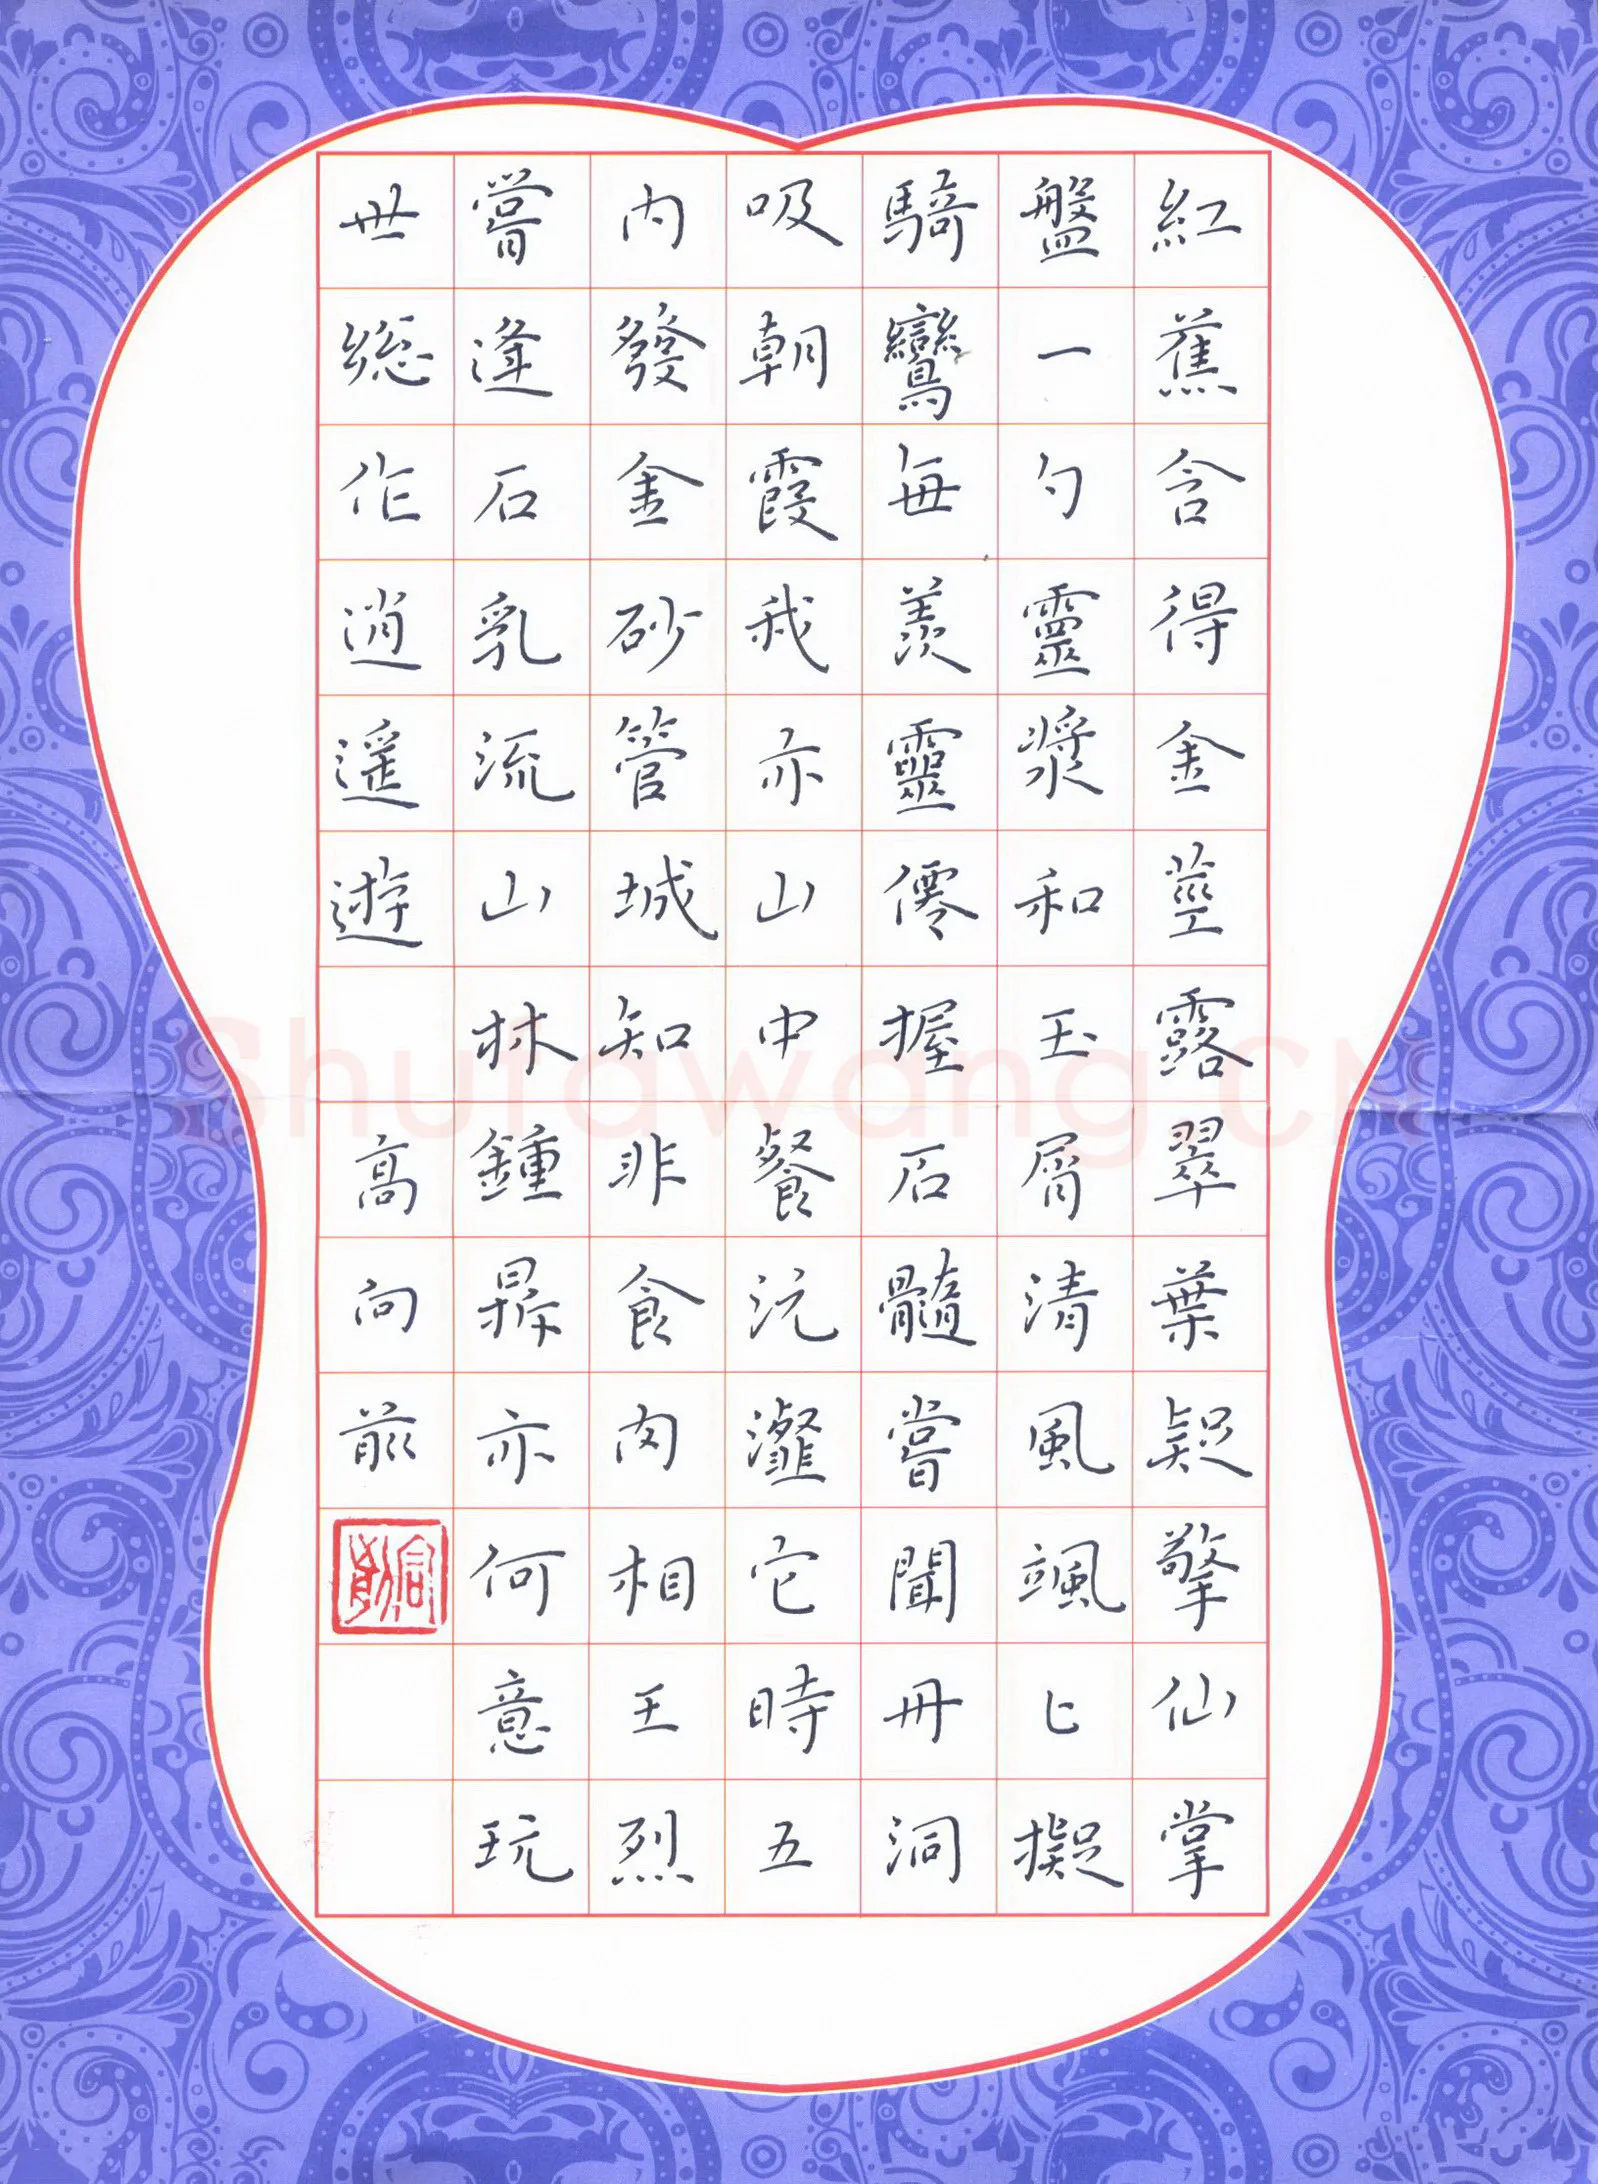 紅蕉含得金莖露翠葉疑擎仙掌
盤一勺靈漿和玉屑清風颯匕擬
騎鸞每羨靈僊握石髓嘗聞丹洞
吸朝霞我亦山中餐沆瀣它時五
內發金砂管城知非食肉相王烈
嘗逢石乳流山林鍾鼎亦何意玩
世總作逍遙遊
高向前
Shufawang.CN